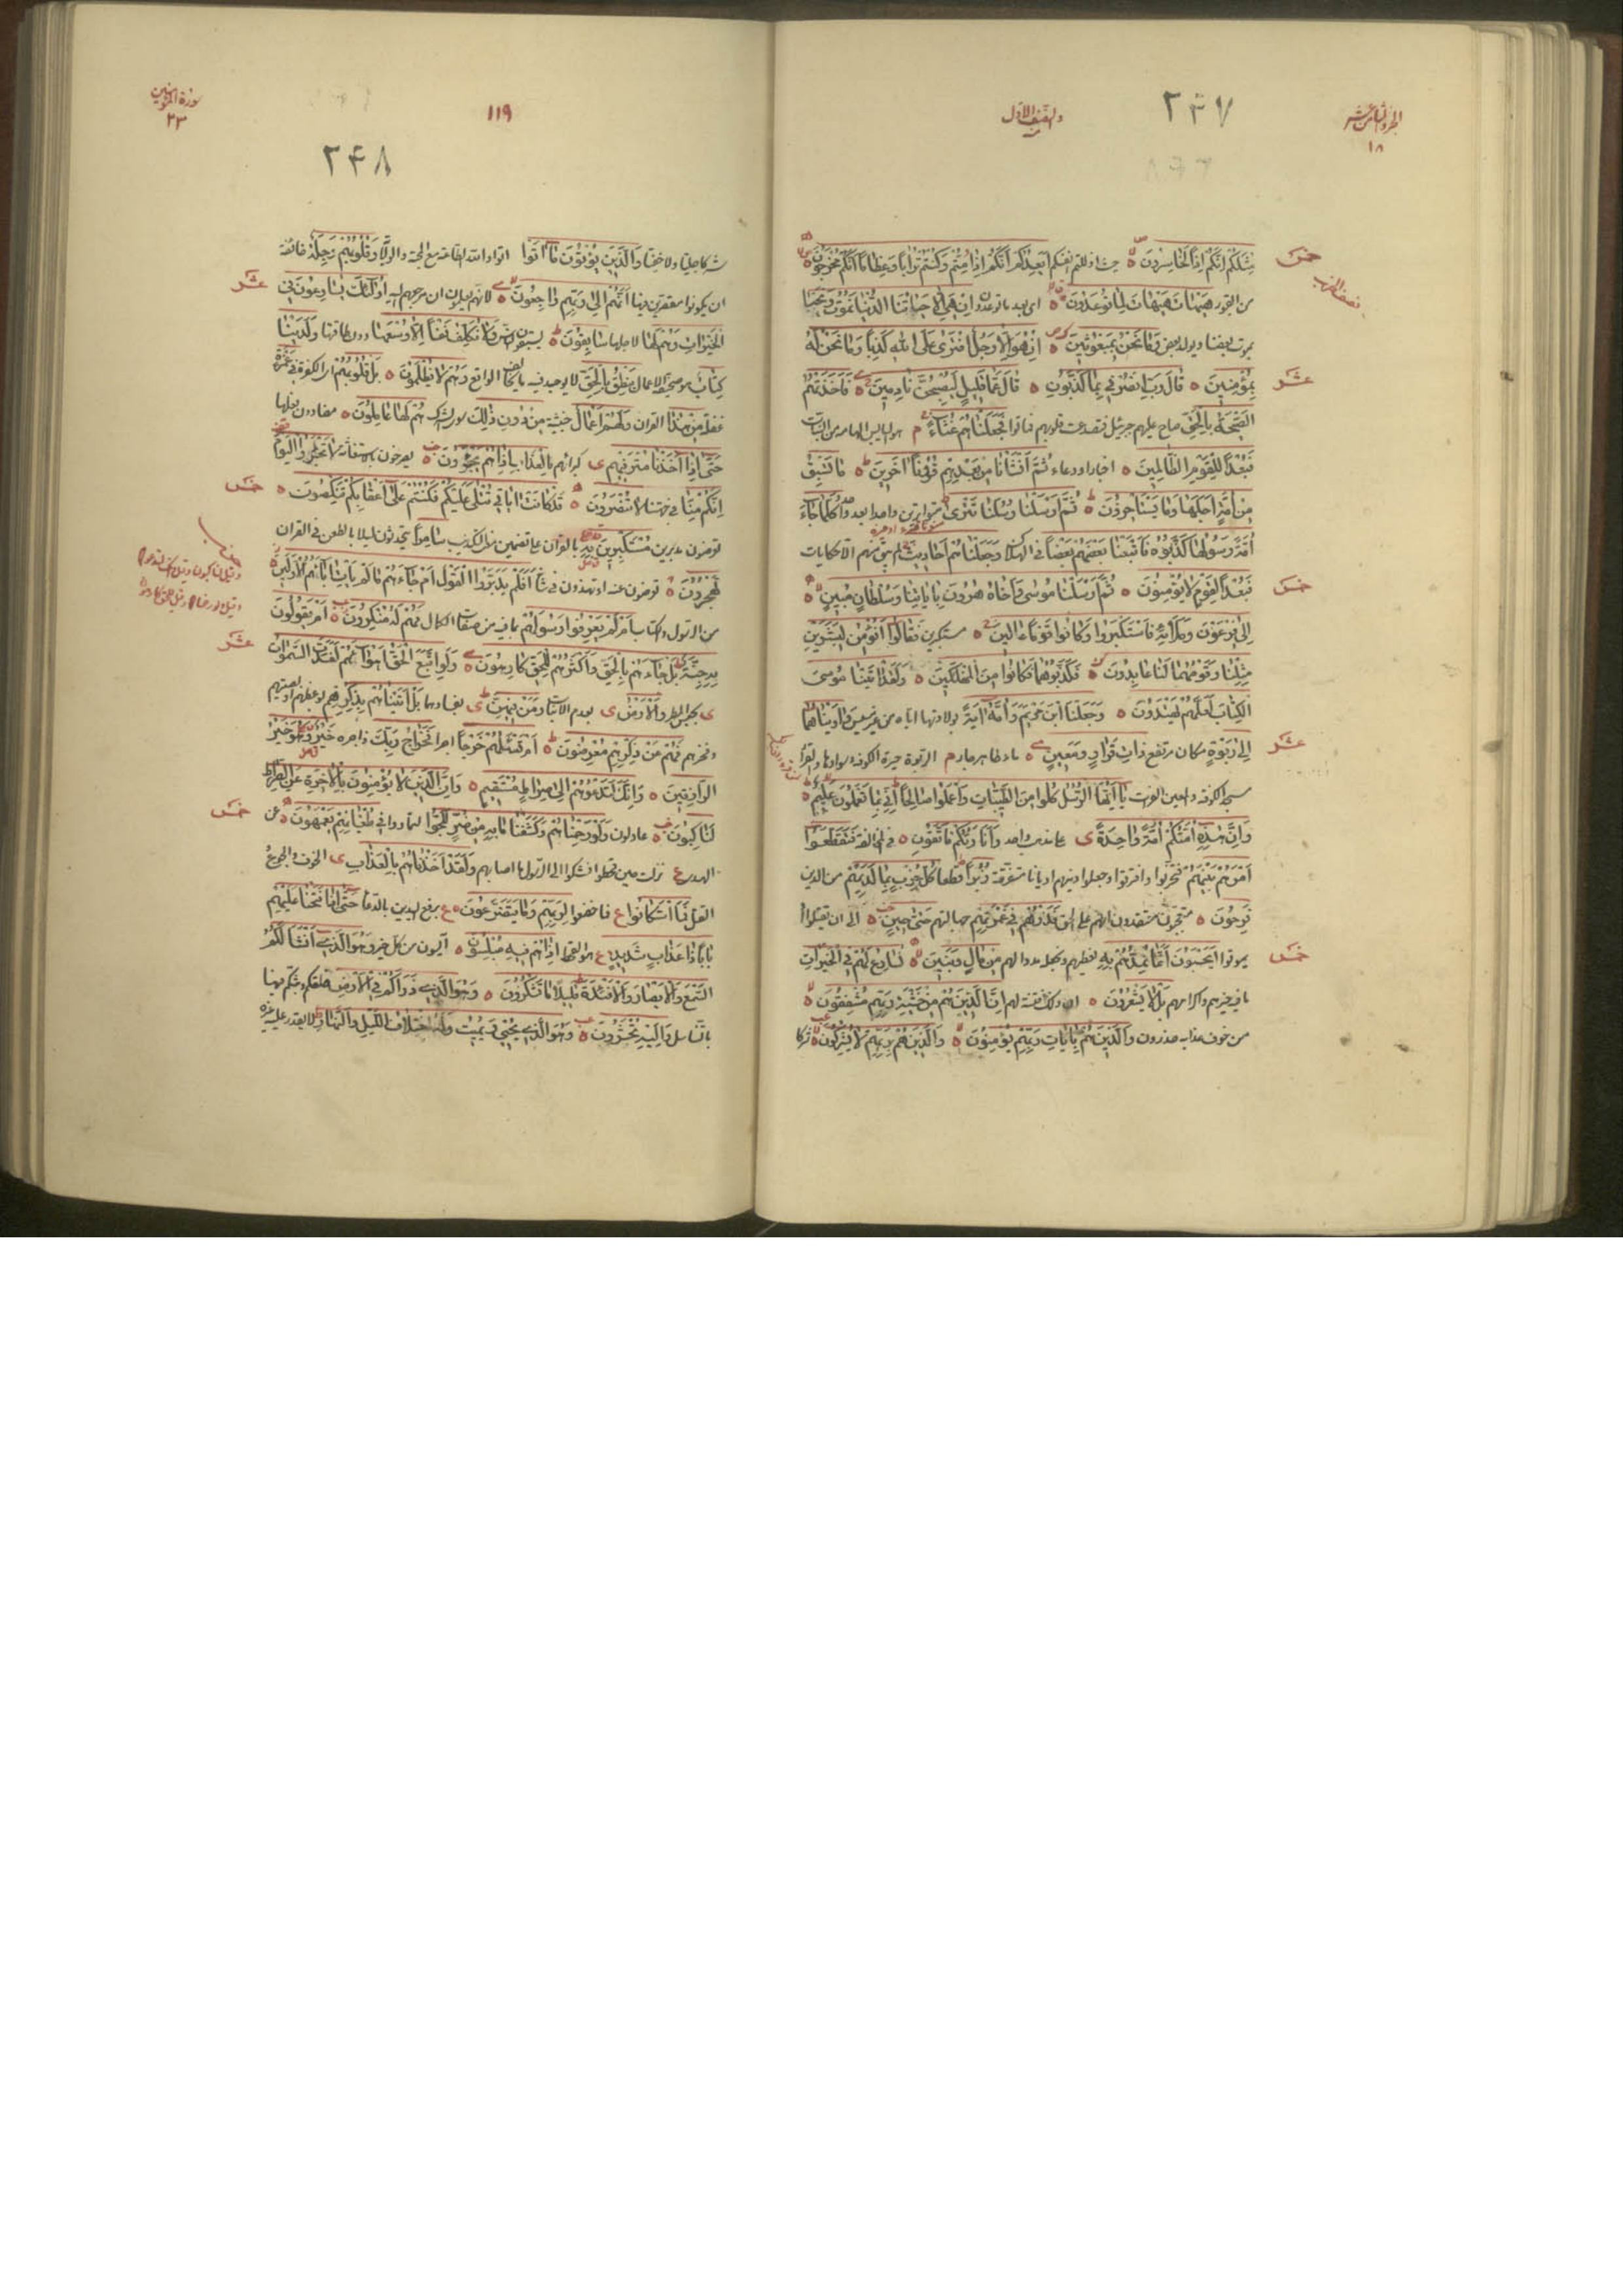 الجزء الثامن عشر
١٨
والنصف الاول
٢٣٧
خمس
نصف الحزب
مِثْلَكُمْ إِنَّكُمْ إِذًا لَخَاسِرُونَ أَيَعِدُكُمْ أَنَّكُمْ إِذَا مِتُّمْ وَكُنْتُمْ تُرَابًا وَعِظَامًا أَنَّكُمْ مُخْرَجُونَ
من القبور هَيْهَاتَ هَيْهَاتَ لِمَا تُوعَدُونَ اى بعد ما توعدون إِنْ هِيَ إِلَّا حَيَاتُنَا الدُّنْيَا نَمُوتُ وَنَحْيَا
يموت بعضنا ويولد بعض وَمَا نَحْنُ بِمَبْعُوثِينَ إِنْ هُوَ إِلَّا رَجُلٌ افْتَرَى عَلَى اللَّهِ كَذِبًا وَمَا نَحْنُ لَهُ
عشر
بِمُؤْمِنِينَ قَالَ رَبِّ انْصُرْنِي بِمَا كَذَّبُونِ قَالَ عَمَّا قَلِيلٍ لَيُصْبِحُنَّ نَادِمِينَ فَأَخَذَتْهُمُ
الصَّيْحَةُ بِالْحَقِّ صاح عليهم جبرئيل فتصدعت قلوبهم فماتوا فَجَعَلْنَاهُمْ غُثَاءً م هو اليابس الهامد من النبات
فَبُعْدًا لِلْقَوْمِ الظَّالِمِينَ اخبار او دعاء ثُمَّ أَنْشَأْنَا مِنْ بَعْدِهِمْ قُرُونًا آخَرِينَ مَا تَسْبِقُ
مِنْ أُمَّةٍ أَجَلَهَا وَمَا يَسْتَأْخِرُونَ ثُمَّ أَرْسَلْنَا رُسُلَنَا تَتْرَى متواترين واحدا بعد واحد كُلَّمَا جَاءَ
أُمَّةً رَسُولُهَا كَذَّبُوهُ فَأَتْبَعْنَا بَعْضَهُمْ بَعْضًا فى الهلاك وَجَعَلْنَاهُمْ أَحَادِيثَ لم يبق منهم الا حكايات
خمس
فَبُعْدًا لِقَوْمٍ لَا يُؤْمِنُونَ ثُمَّ أَرْسَلْنَا مُوسَى وَأَخَاهُ هَارُونَ بِآيَاتِنَا وَسُلْطَانٍ مُبِينٍ
إِلَى فِرْعَوْنَ وَمَلَئِهِ فَاسْتَكْبَرُوا وَكَانُوا قَوْمًا عَالِينَ متكبرين فَقَالُوا أَنُؤْمِنُ لِبَشَرَيْنِ
مِثْلِنَا وَقَوْمُهُمَا لَنَا عَابِدُونَ فَكَذَّبُوهُمَا فَكَانُوا مِنَ الْمُهْلَكِينَ وَلَقَدْ آتَيْنَا مُوسَى
الْكِتَابَ لَعَلَّهُمْ يَهْتَدُونَ وَجَعَلْنَا ابْنَ مَرْيَمَ وَأُمَّهُ آيَةً بولادتها اياه من غير مسيس وَآوَيْنَاهُمَا
عشر
إِلَى رَبْوَةٍ مكان مرتفع ذَاتِ قَرَارٍ وَمَعِينٍ ماء ظاهر جار م الربوة حيرة الكوفة وسوادها والقرار
مسجد الكوفة والمعين الفرات يَا أَيُّهَا الرُّسُلُ كُلُوا مِنَ الطَّيِّبَاتِ وَاعْمَلُوا صَالِحًا إِنِّي بِمَا تَعْمَلُونَ عَلِيمٌ
وَإِنَّ هَذِهِ أُمَّتُكُمْ أُمَّةً وَاحِدَةً ى على مذهب واحد وَأَنَا رَبُّكُمْ فَاتَّقُونِ فى المخالفة فَتَقَطَّعُوا
أَمْرَهُمْ بَيْنَهُمْ فتحزبوا وافترقوا وجعلوا دينهم اديانا متفرقة زُبُرًا قطعا كُلُّ حِزْبٍ بِمَا لَدَيْهِمْ من الدين
فَرِحُونَ معتقدون انهم على الحق فَذَرْهُمْ فِي غَمْرَتِهِمْ جهالتهم حَتَّى حِينٍ الى ان يقتلوا او
خمس
يموتوا أَيَحْسَبُونَ أَنَّمَا نُمِدُّهُمْ بِهِ نعطيهم ونجعله مددا لهم مِنْ مَالٍ وَبَنِينَ نُسَارِعُ لَهُمْ فِي الْخَيْرَاتِ
فيما فيه خيرهم واكرامهم بَلْ لَا يَشْعُرُونَ ان ذلك فتنة لهم إِنَّ الَّذِينَ هُمْ مِنْ خَشْيَةِ رَبِّهِمْ مُشْفِقُونَ
من خوف عذابه حذرون وَالَّذِينَ هُمْ بِآيَاتِ رَبِّهِمْ يُؤْمِنُونَ وَالَّذِينَ هُمْ بِرَبِّهِمْ لَا يُشْرِكُونَ شركا
سورة المؤمنين
٢٣
١١٩
٢٤٨
شركا جليا ولا خفيا وَالَّذِينَ يُؤْتُونَ مَا آتَوْا وَقُلُوبُهُمْ وَجِلَةٌ خائفة
عشر
ان يكونوا مقصرين أَنَّهُمْ إِلَى رَبِّهِمْ رَاجِعُونَ لانهم يعلمون ان مرجعهم اليه أُولَئِكَ يُسَارِعُونَ فِي
الْخَيْرَاتِ وَهُمْ لَهَا لاجلها سَابِقُونَ وَلَا نُكَلِّفُ نَفْسًا إِلَّا وُسْعَهَا دون طاقتها وَلَدَيْنَا
كِتَابٌ هو صحيفة الاعمال يَنْطِقُ بِالْحَقِّ الواقع وَهُمْ لَا يُظْلَمُونَ بَلْ قُلُوبُهُمْ فِي غَمْرَةٍ
غفلة مِنْ هَذَا القرآن وَلَهُمْ أَعْمَالٌ خبيثة مِنْ دُونِ ذَلِكَ هُمْ لَهَا عَامِلُونَ معتادون بفعلها
حَتَّى إِذَا أَخَذْنَا مُتْرَفِيهِمْ ى كبرائهم بِالْعَذَابِ إِذَا هُمْ يَجْأَرُونَ يصرخون باستغاثة لَا تَجْأَرُوا الْيَوْمَ
خمس
إِنَّكُمْ مِنَّا لَا تُنْصَرُونَ قَدْ كَانَتْ آيَاتِي تُتْلَى عَلَيْكُمْ فَكُنْتُمْ عَلَى أَعْقَابِكُمْ تَنْكِصُونَ
تعرضون مدبرين مُسْتَكْبِرِينَ بِهِ بالقرآن سَامِرًا تحدثون ليلا بالطعن فى القرآن
تَهْجُرُونَ أَفَلَمْ يَدَّبَّرُوا الْقَوْلَ أَمْ جَاءَهُمْ مَا لَمْ يَأْتِ آبَاءَهُمُ الْأَوَّلِينَ
من الرسول والكتاب أَمْ لَمْ يَعْرِفُوا رَسُولَهُمْ بما فيه من صفات الكمال فَهُمْ لَهُ مُنْكِرُونَ أَمْ يَقُولُونَ
عشر
بِهِ جِنَّةٌ بَلْ جَاءَهُمْ بِالْحَقِّ وَأَكْثَرُهُمْ لِلْحَقِّ كَارِهُونَ وَلَوِ اتَّبَعَ الْحَقُّ أَهْوَاءَهُمْ لَفَسَدَتِ السَّمَوَاتُ
ى بحبس المطر وَالْأَرْضُ ى بعدم النبات وَمَنْ فِيهِنَّ ى بفسادهما بَلْ أَتَيْنَاهُمْ بِذِكْرِهِمْ
وفخرهم فَهُمْ عَنْ ذِكْرِهِمْ مُعْرِضُونَ أَمْ تَسْأَلُهُمْ خَرْجًا اجرا فَخَرَاجُ رَبِّكَ واجره خَيْرٌ وَهُوَ خَيْرُ
الرَّازِقِينَ وَإِنَّكَ لَتَدْعُوهُمْ إِلَى صِرَاطٍ مُسْتَقِيمٍ وَإِنَّ الَّذِينَ لَا يُؤْمِنُونَ بِالْآخِرَةِ عَنِ الصِّرَاطِ
خمس
لَنَاكِبُونَ عادلون وَلَوْ رَحِمْنَاهُمْ وَكَشَفْنَا مَا بِهِمْ مِنْ ضُرٍّ لَلَجُّوا لتمادوا فِي طُغْيَانِهِمْ يَعْمَهُونَ عن
الهدى نزلت حين قحطوا فشكوا الى الرسول ما اصابهم وَلَقَدْ أَخَذْنَاهُمْ بِالْعَذَابِ ى الخوف والجوع
القتل فَمَا اسْتَكَانُوا ع فما خضعوا لِرَبِّهِمْ وَمَا يَتَضَرَّعُونَ ع برفع اليدين بالدعاء حَتَّى إِذَا فَتَحْنَا عَلَيْهِمْ
بَابًا ذَا عَذَابٍ شَدِيدٍ ع هو القحط إِذَا هُمْ فِيهِ مُبْلِسُونَ آيسون من كل خير وَهُوَ الَّذِي أَنْشَأَ لَكُمُ
السَّمْعَ وَالْأَبْصَارَ وَالْأَفْئِدَةَ قَلِيلًا مَا تَشْكُرُونَ وَهُوَ الَّذِي ذَرَأَكُمْ فِي الْأَرْضِ خلقكم وبثكم فيها
بالتناسل وَإِلَيْهِ تُحْشَرُونَ وَهُوَ الَّذِي يُحْيِي وَيُمِيتُ وَلَهُ اخْتِلَافُ اللَّيْلِ وَالنَّهَارِ لا يقدر عليه غيره